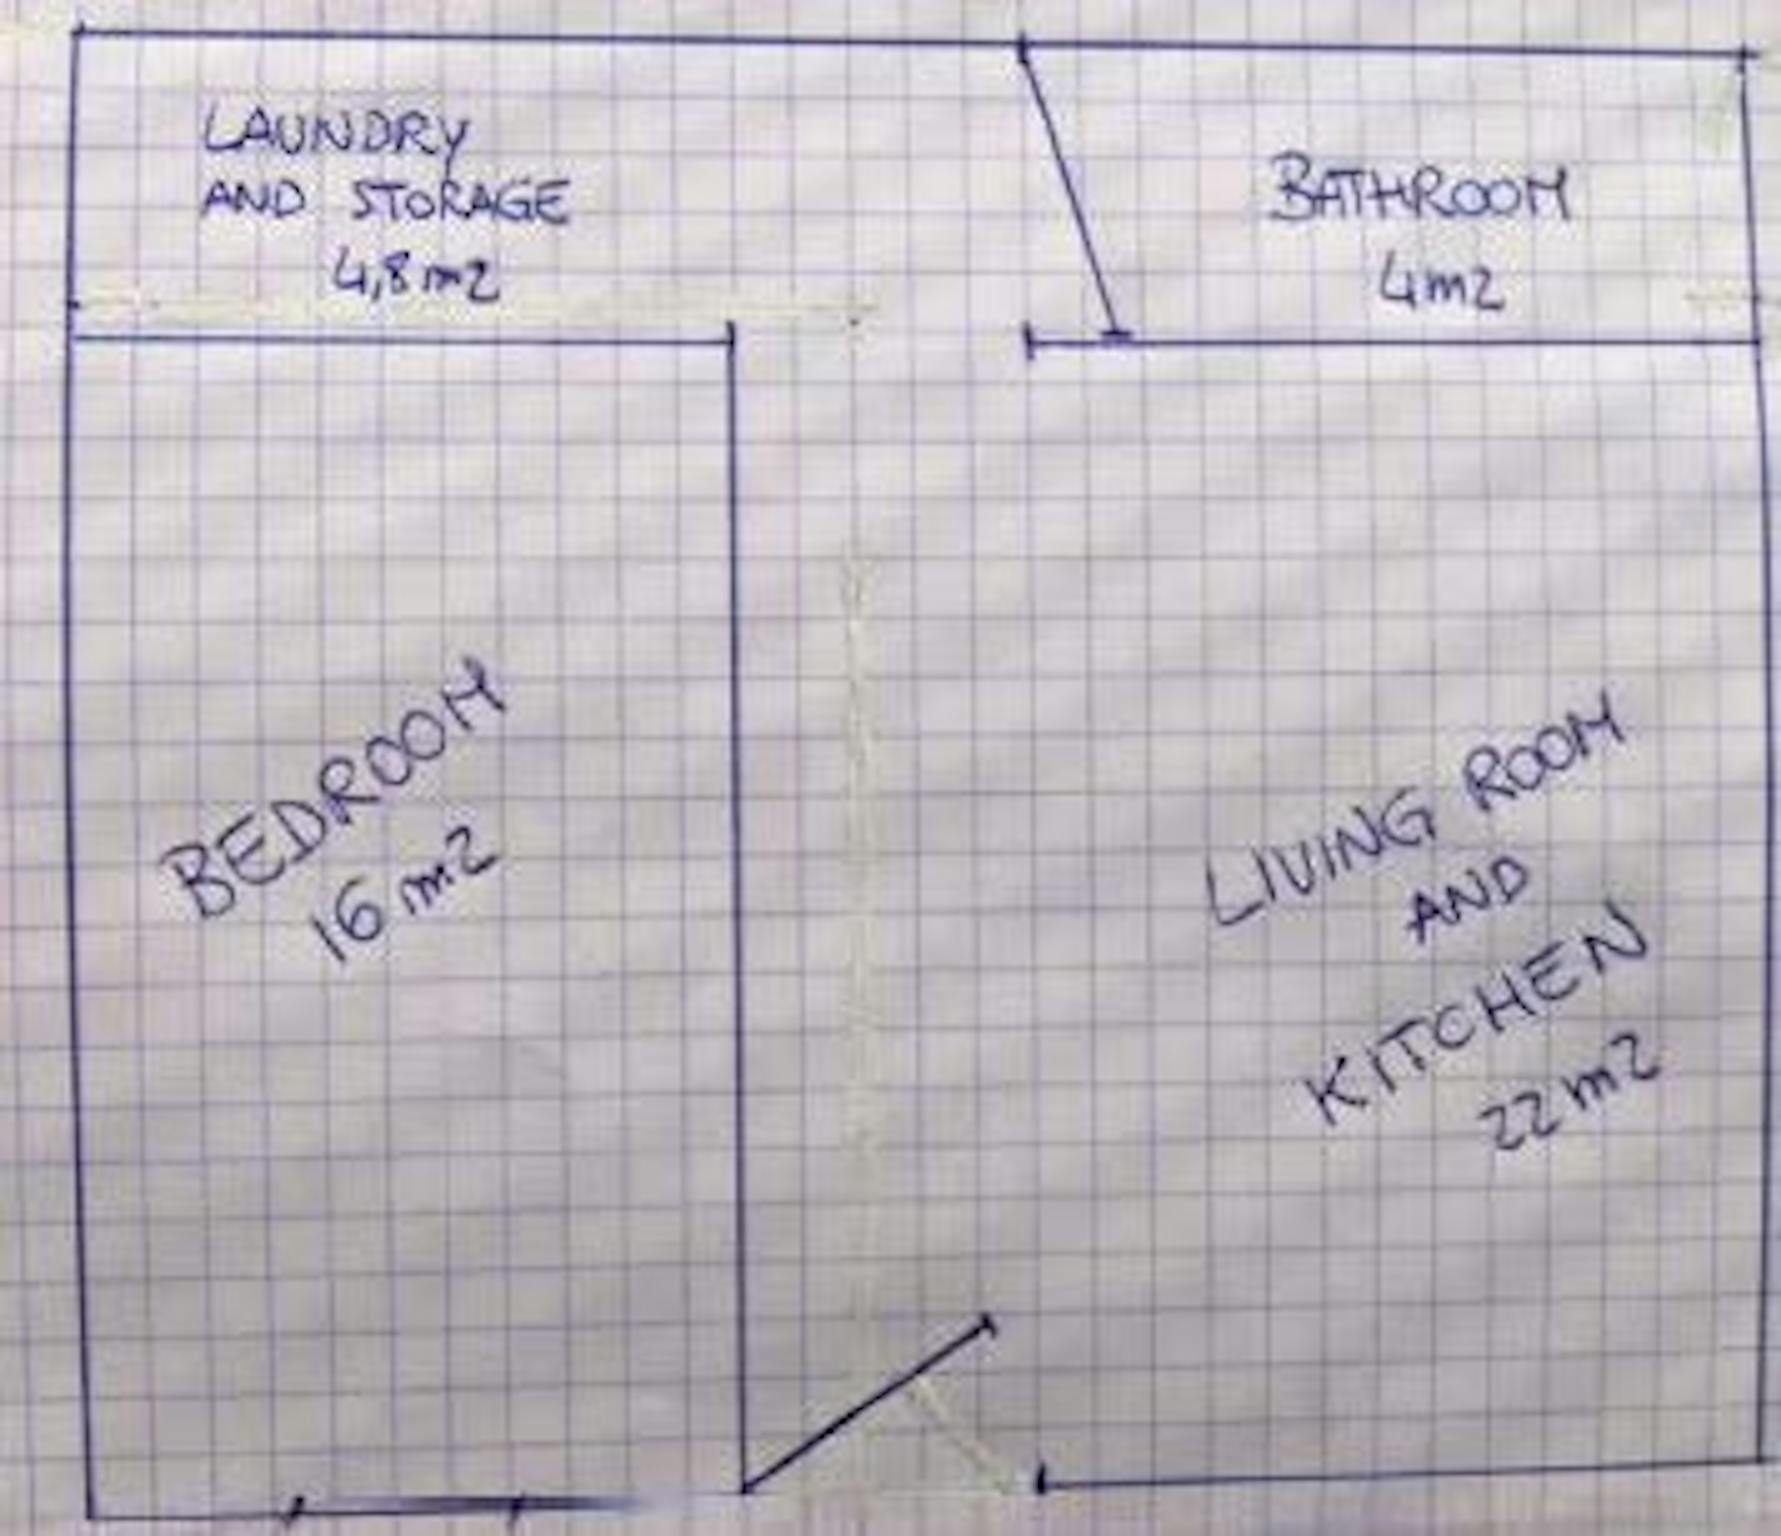 LAUNDRY
AND STORAGE
4,8 m2
BATHROOM
4m2
BEDROOM
16 m2
LIVING ROOM
AND
KITCHEN
22 m2